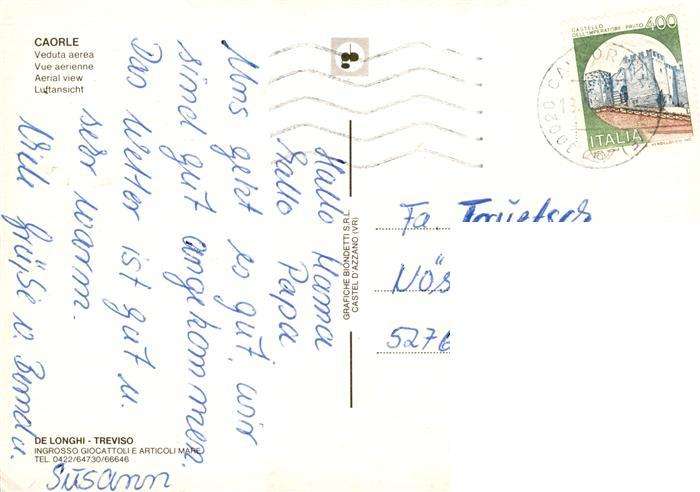 CAORLE
Veduta aerea
Vue aerienne
Aerial view
Luftansicht
CASTELLO
DELL'IMPERATORE PRATO
400
ITALIA
Hallo Mama
Hallo Papa
Uns geht es gut, wir
sind gut angekommen.
Das Wetter ist gut u.
sehr warm.
Viele Grüße v.
Susann
GRAFICHE BIONDETTI S.R.L.
CASTEL D'AZZANO (VR)
Fa.
Nös
5276
DE LONGHI - TREVISO
INGROSSO GIOCATTOLI E ARTICOLI MARE
TEL. 0422/64730/66646